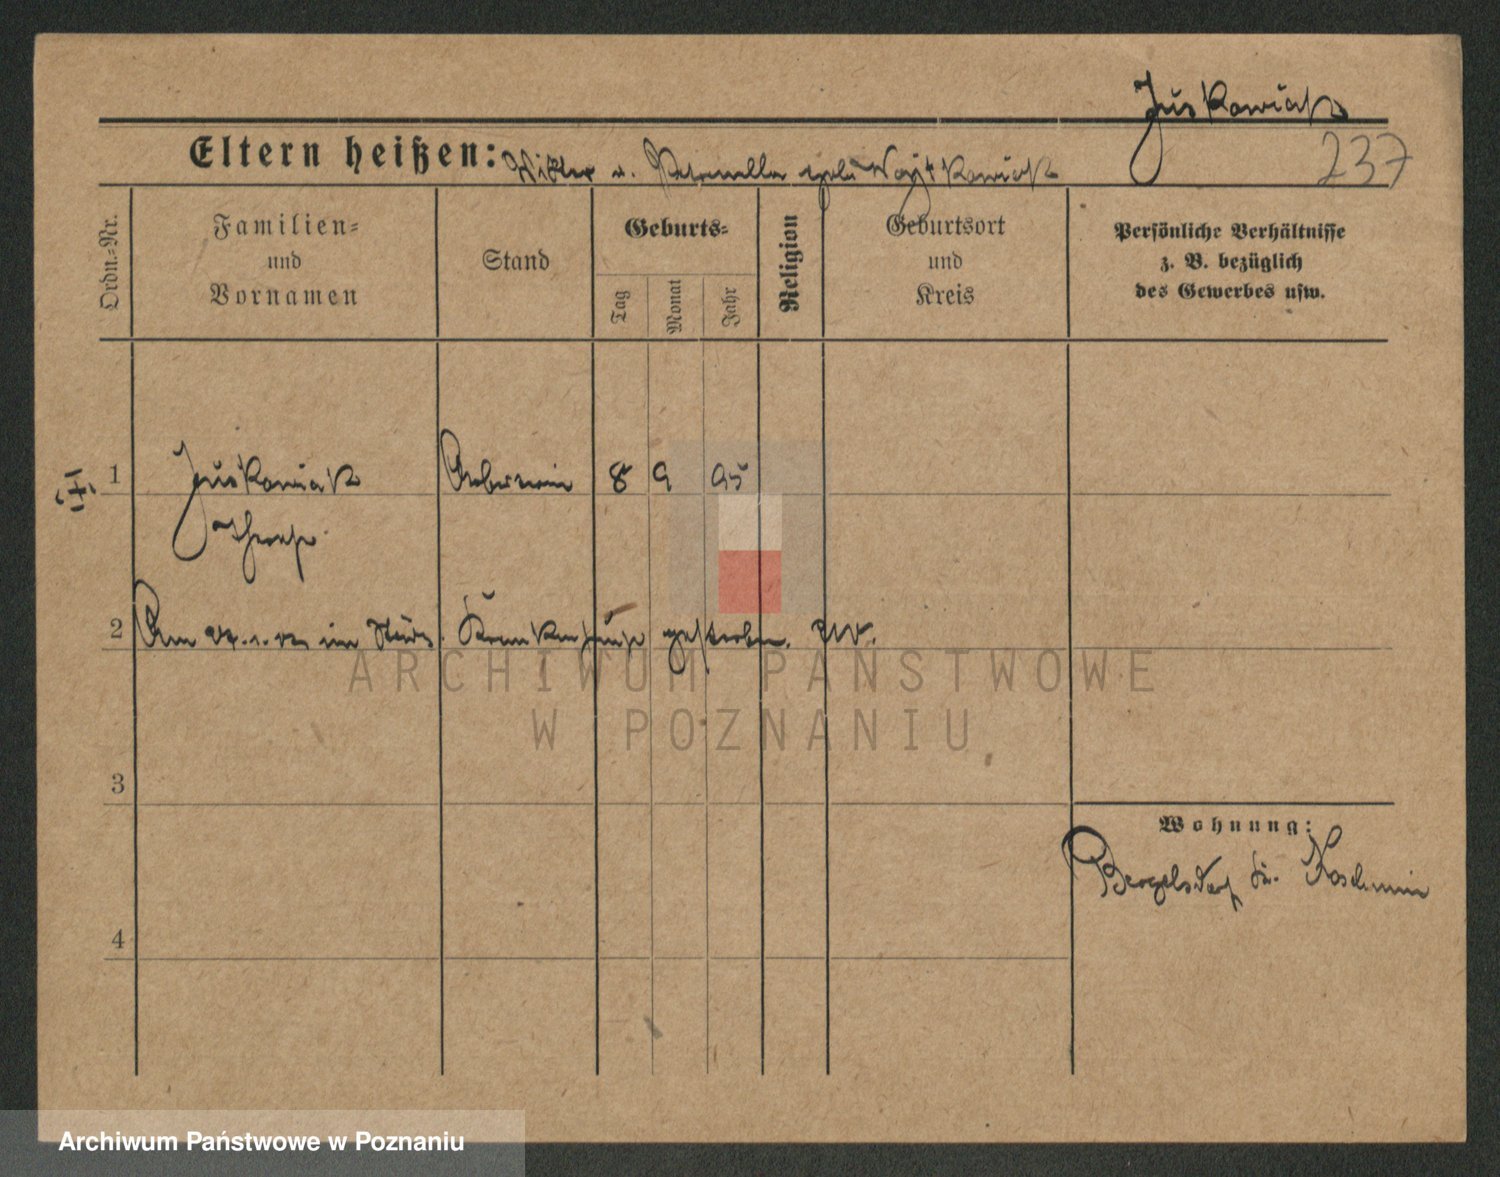 Juskowiak
237
Eltern heißen: u. Petronella geb. Woytkowiak
Ordn.-Nr.
Familien-
und
Vornamen
Stand
Geburts-
Tag
Monat
Jahr
Religion
Geburtsort
und
Kreis
Persönliche Verhältnisse
z. B. bezüglich
des Gewerbes usw.
1 Juskowiak Arbeiterin 8 9 95
2 Am im Städt. Krankenhause gestorben.
3
Wohnung:
Bergelsdorf Kr. Koschmin
4
ARCHIWUM PAŃSTWOWE
W POZNANIU
Archiwum Państwowe w Poznaniu